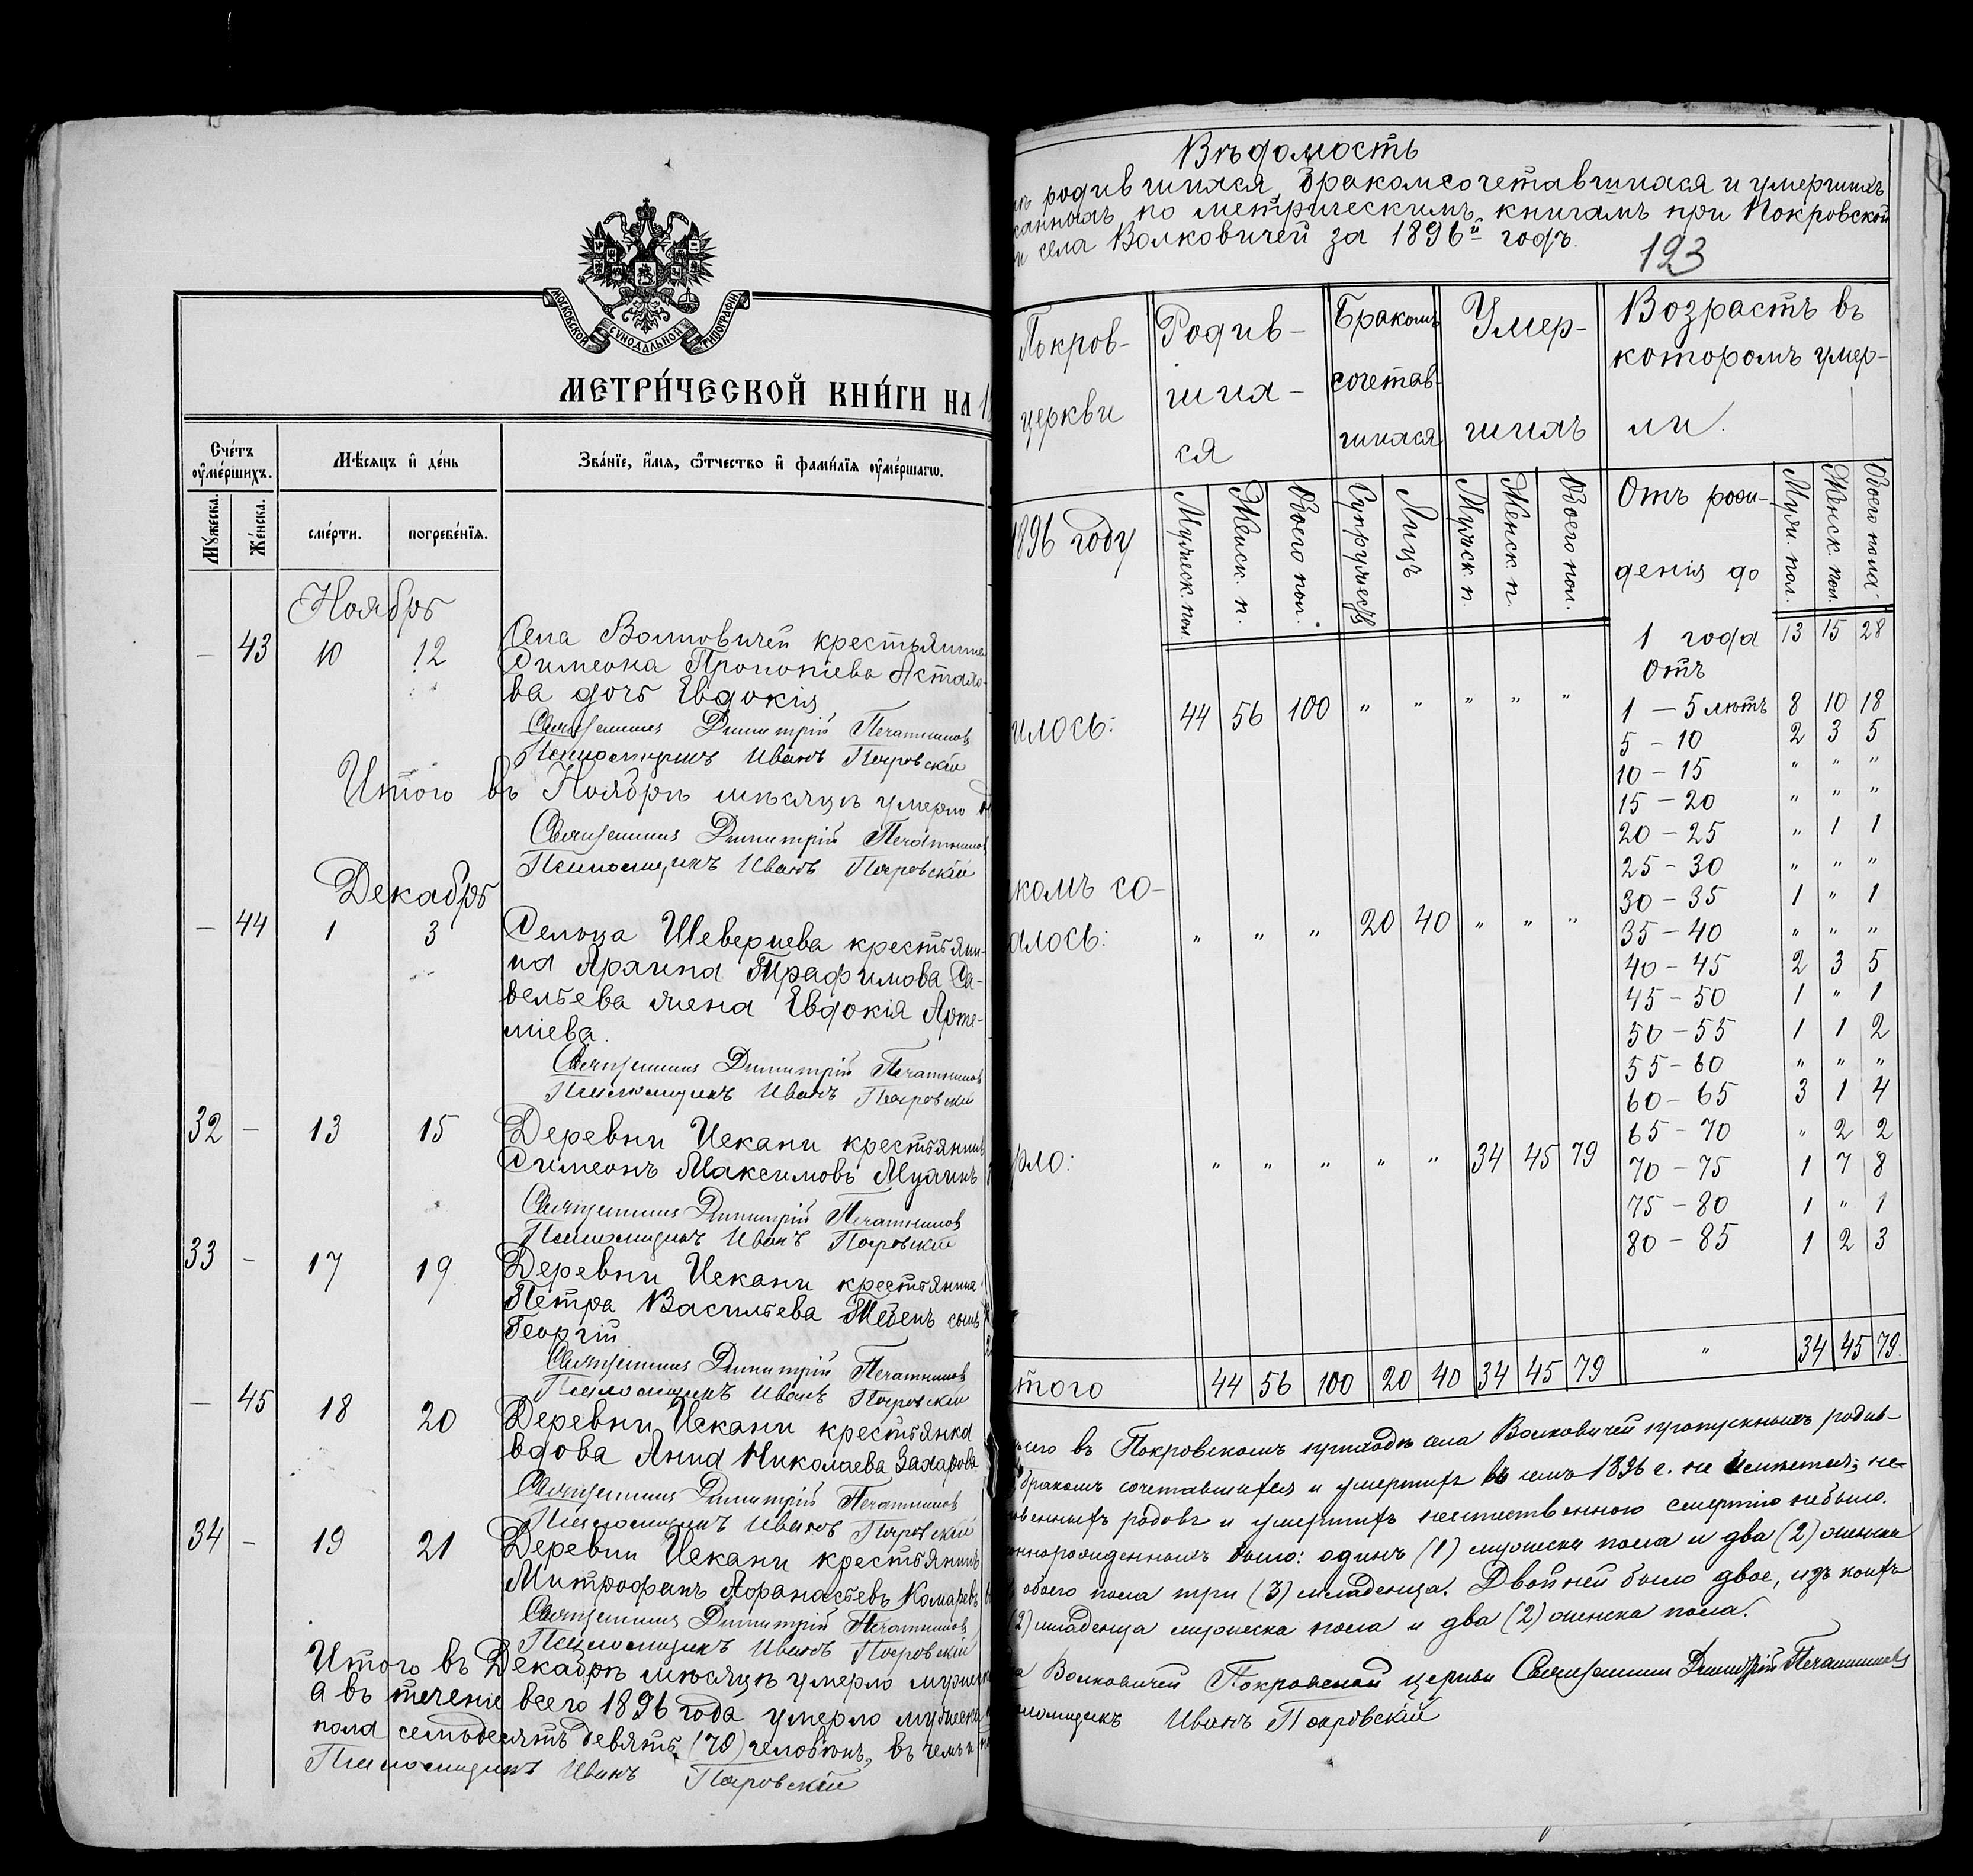 МОСКОВСКОЙ СУНОДАЛЬНОЙ ТИПОГРАФІИ
МЕТРИ́ЧЕСКОЙ КНИ́ГИ НА 1
Сче́тъ ᲂу҆ме́ршихъ.
Мѣ́сяцъ и҆ де́нь
Зва́нїе, и҆́мя, ѻ҆́тчество и҆ фами́лїя ᲂу҆ме́ршагѡ.
Мꙋ́жеска.
Же́нска.
сме́рти.
погребе́нїя.
Ноябрь
— 43 10 12 Села Волковичей крестьянина
Симеона Прокопіева Астахо-
ва дочь Евдокія
Священникъ Димитрій Печатников
Псаломщикъ Иванъ Покровскій
Итого въ Ноябрѣ мѣсяцѣ умерло
Священникъ Димитрій Печатников
Псаломщикъ Иванъ Покровскій
Декабрь
— 44 1 3 Сельца крестьяни-
на Архипа Трафимова Са-
вельева жена Евдокія Арте-
міева.
Священникъ Димитрій Печатников
Псаломщикъ Иванъ Покровскій
32 — 13 15 Деревни Чекани крестьянинъ
Симеонъ Максимовъ
Священникъ Димитрій Печатников
Псаломщикъ Иванъ Покровскій
33 — 17 19. Деревни Чекани крестьянина
Петра Васильева сынъ
Георгій
Священникъ Димитрій Печатников
Псаломщикъ Иванъ Покровскій
— 45 18 20 Деревни Чекани крестьянка
вдова Анна Николаева Захарова
Священникъ Димитрій Печатников
Псаломщикъ Иванъ Покровскій
34 — 19 21 Деревни Чекани крестьянинъ
Митрофанъ Афанасьевъ Комаревъ
Священникъ Димитрій Печатников
Псаломщикъ Иванъ Покровскій
Итого въ Декабрѣ мѣсяцѣ умерло мужеск
а въ теченіе всего 1896 года умерло мужеска
пола семьдесятъ девять (79) человѣкъ, въ чемъ и
Псаломщикъ Иванъ Покровскій
Вѣдомость
родившихся, бракомсочетавшихся и умершихъ
санныхъ по метрическимъ книгамъ при Покровской
села Волковичей за 1896й годъ.
123
Покров-
церкви
Родив-
ших-
ся
Бракомъ
сочетав-
шихся
Умер-
шихъ
Возрастъ въ
которомъ умер-
ли.
1896 году
Мужеск. пол.
Женск. п.
Обоего пол.
Супружествъ
Лицъ
Мужск. п.
Женск. п.
Обоего пол.
Отъ рож-
денія до
Муж. пол.
Женск. пол.
Обоего пола
1 года 13 15 28
Отъ
1 — 5 лѣтъ 8 10 18
илось: 44 56 100 " " " " "
5 — 10 2 3 5
10 — 15 " " "
15 — 20 " " "
20 — 25 " 1 1
25 — 30 " " "
30 — 35 1 " 1
комъ со-
алось: " " " 20 40 " " "
35 — 40 " " "
40 — 45 2 3 5
45 — 50 1 " 1
50 — 55 1 1 2
55 — 60 " " "
60 — 65 3 1 4
65 — 70 " 2 2
рло: " " " " " 34 45 79
70 — 75 1 7 8
75 — 80 1 " 1
80 — 85 1 2 3
" 34 45 79.
того 44 56 100 20 40 34 45 79
сего въ Покровскомъ приходѣ села Волковичей пропускныхъ родив-
бракомъ сочетавшихся и умершихъ въ семъ 1896 г. не имѣется; не-
родовъ и умершихъ неестественною смертію небыло.
ннорожденныхъ было: одинъ (1) мужеска пола и два (2) женска
обоего пола три (3) младенца. Двойней было двое, изъ коихъ
(2) младенца мужеска пола и два (2) женска пола.
а Волковичей Покровской церкви Священникъ Димитрій Печатниковъ
ломщикъ Иванъ Покровскій